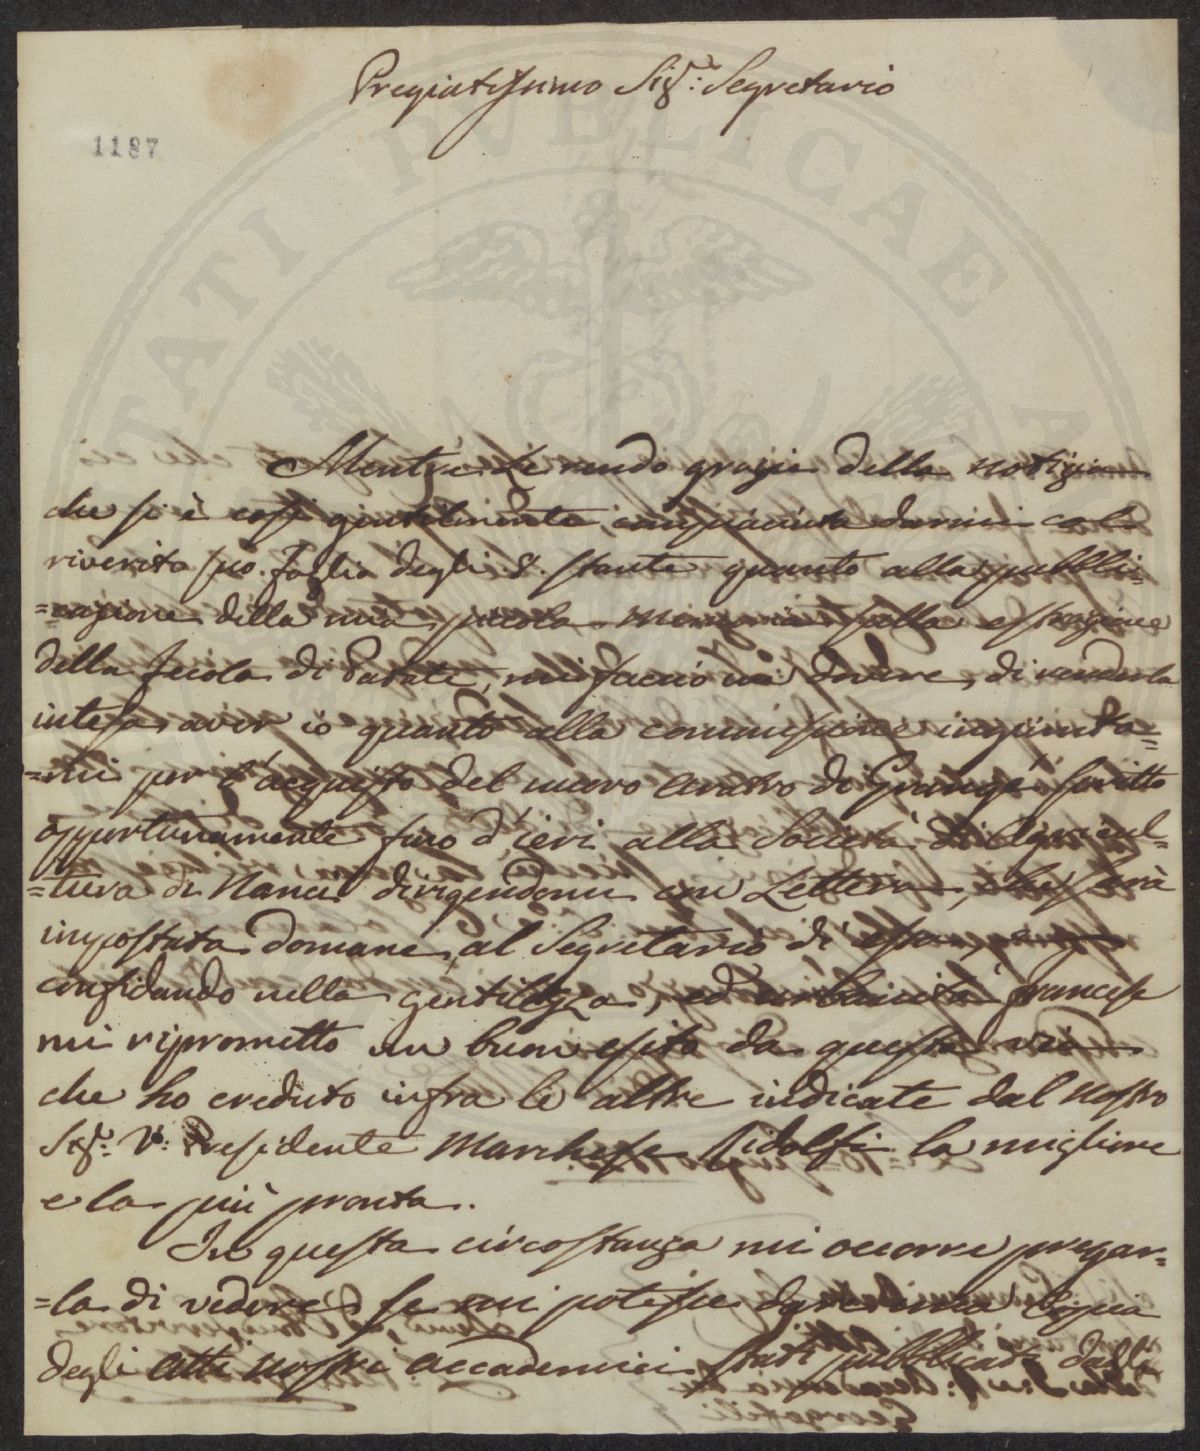 Pregiatissimo Sig.r Segretario
1187
Mentre Le rendo grazie della notizia
che si è così gentilmente compiaciuta darmi col
riverito suo foglio degli 8. stante quanto alla pubbli=
=cazione della mia piccola memoria sulla estrazione
della Fecola di Patate, mi faccio un dovere, di renderla
intesa aver io quanto alla commissione ingiunta=
=mi per l'acquisto del nuovo aratro di Grangé scritto
opportunamente fino d'ieri alla Società di Agricul=
=tura di Nancì dirigendomi con Lettera, che sarà
impostata domane, al Segretario di essa, e
confidando nella gentilezza, ed urbanità francese
mi riprometto un buon esito da questa via
che ho creduto infra le altre indicate dal nostro
Sig.r V. Presidente Marchese Ridolfi la migliore
e la più pronta.
In questa circostanza mi occorre pregar=
=la di vedere se mi potesse dare una Copia
degli atti nostri accademici stati pubblicati dalla
UTILITATI PUBLICAE